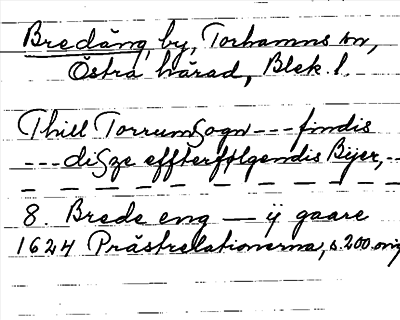 Bredäng, by, Torhamns sn,
Östra härad, Blek. l.
Thill TorrumSogn --- findis
--- diSze effterfølgendis Bÿer, --
8. Brede eng — ij gaare
1624 Prästrelationerna, s. 200 orig